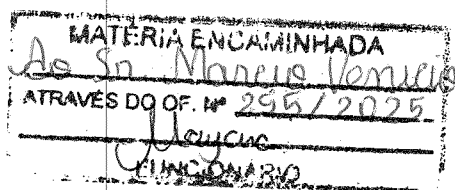 MATÉRIA ENCAMINHADA
Ao Sr. Marcio
ATRAVÉS DO OF. Nº 295/2025
FUNCIONÁRIO